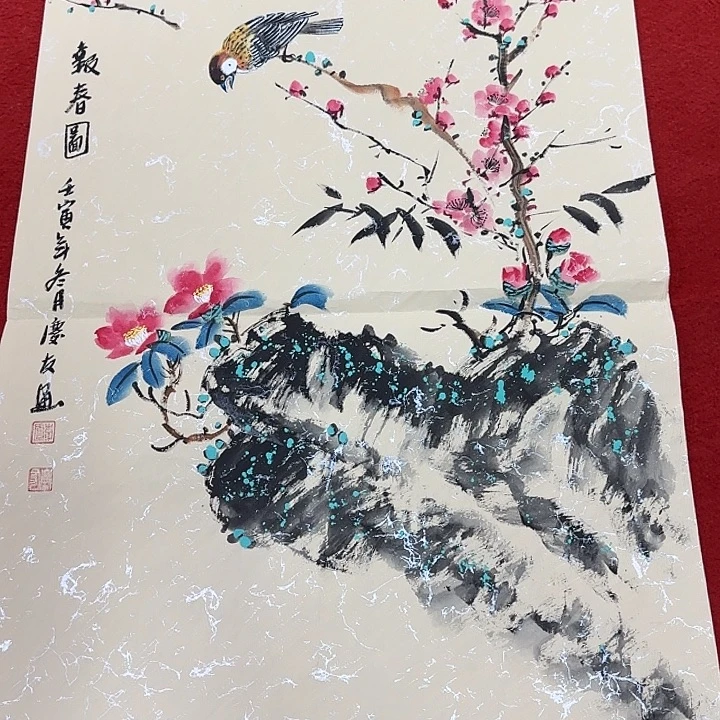 報春圖
壬寅年冬月慶友画